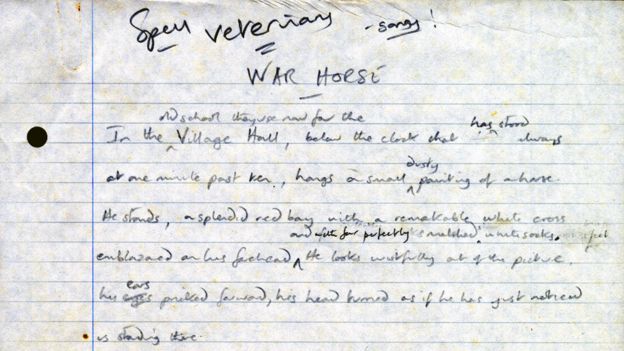 Spell veterinary - sorry!
WAR HORSE
old school they use now for the has stood
In the Village Hall, below the clock that always
dusty
at one minute past ten, hangs a small painting of a horse.
He stands, a splendid red bay with a remarkable white cross
and with four perfectly matched white socks.
emblazoned on his forehead He looks wistfully out of the picture,
ears
his pricked forward, his head turned as if he has just noticed
us standing there.